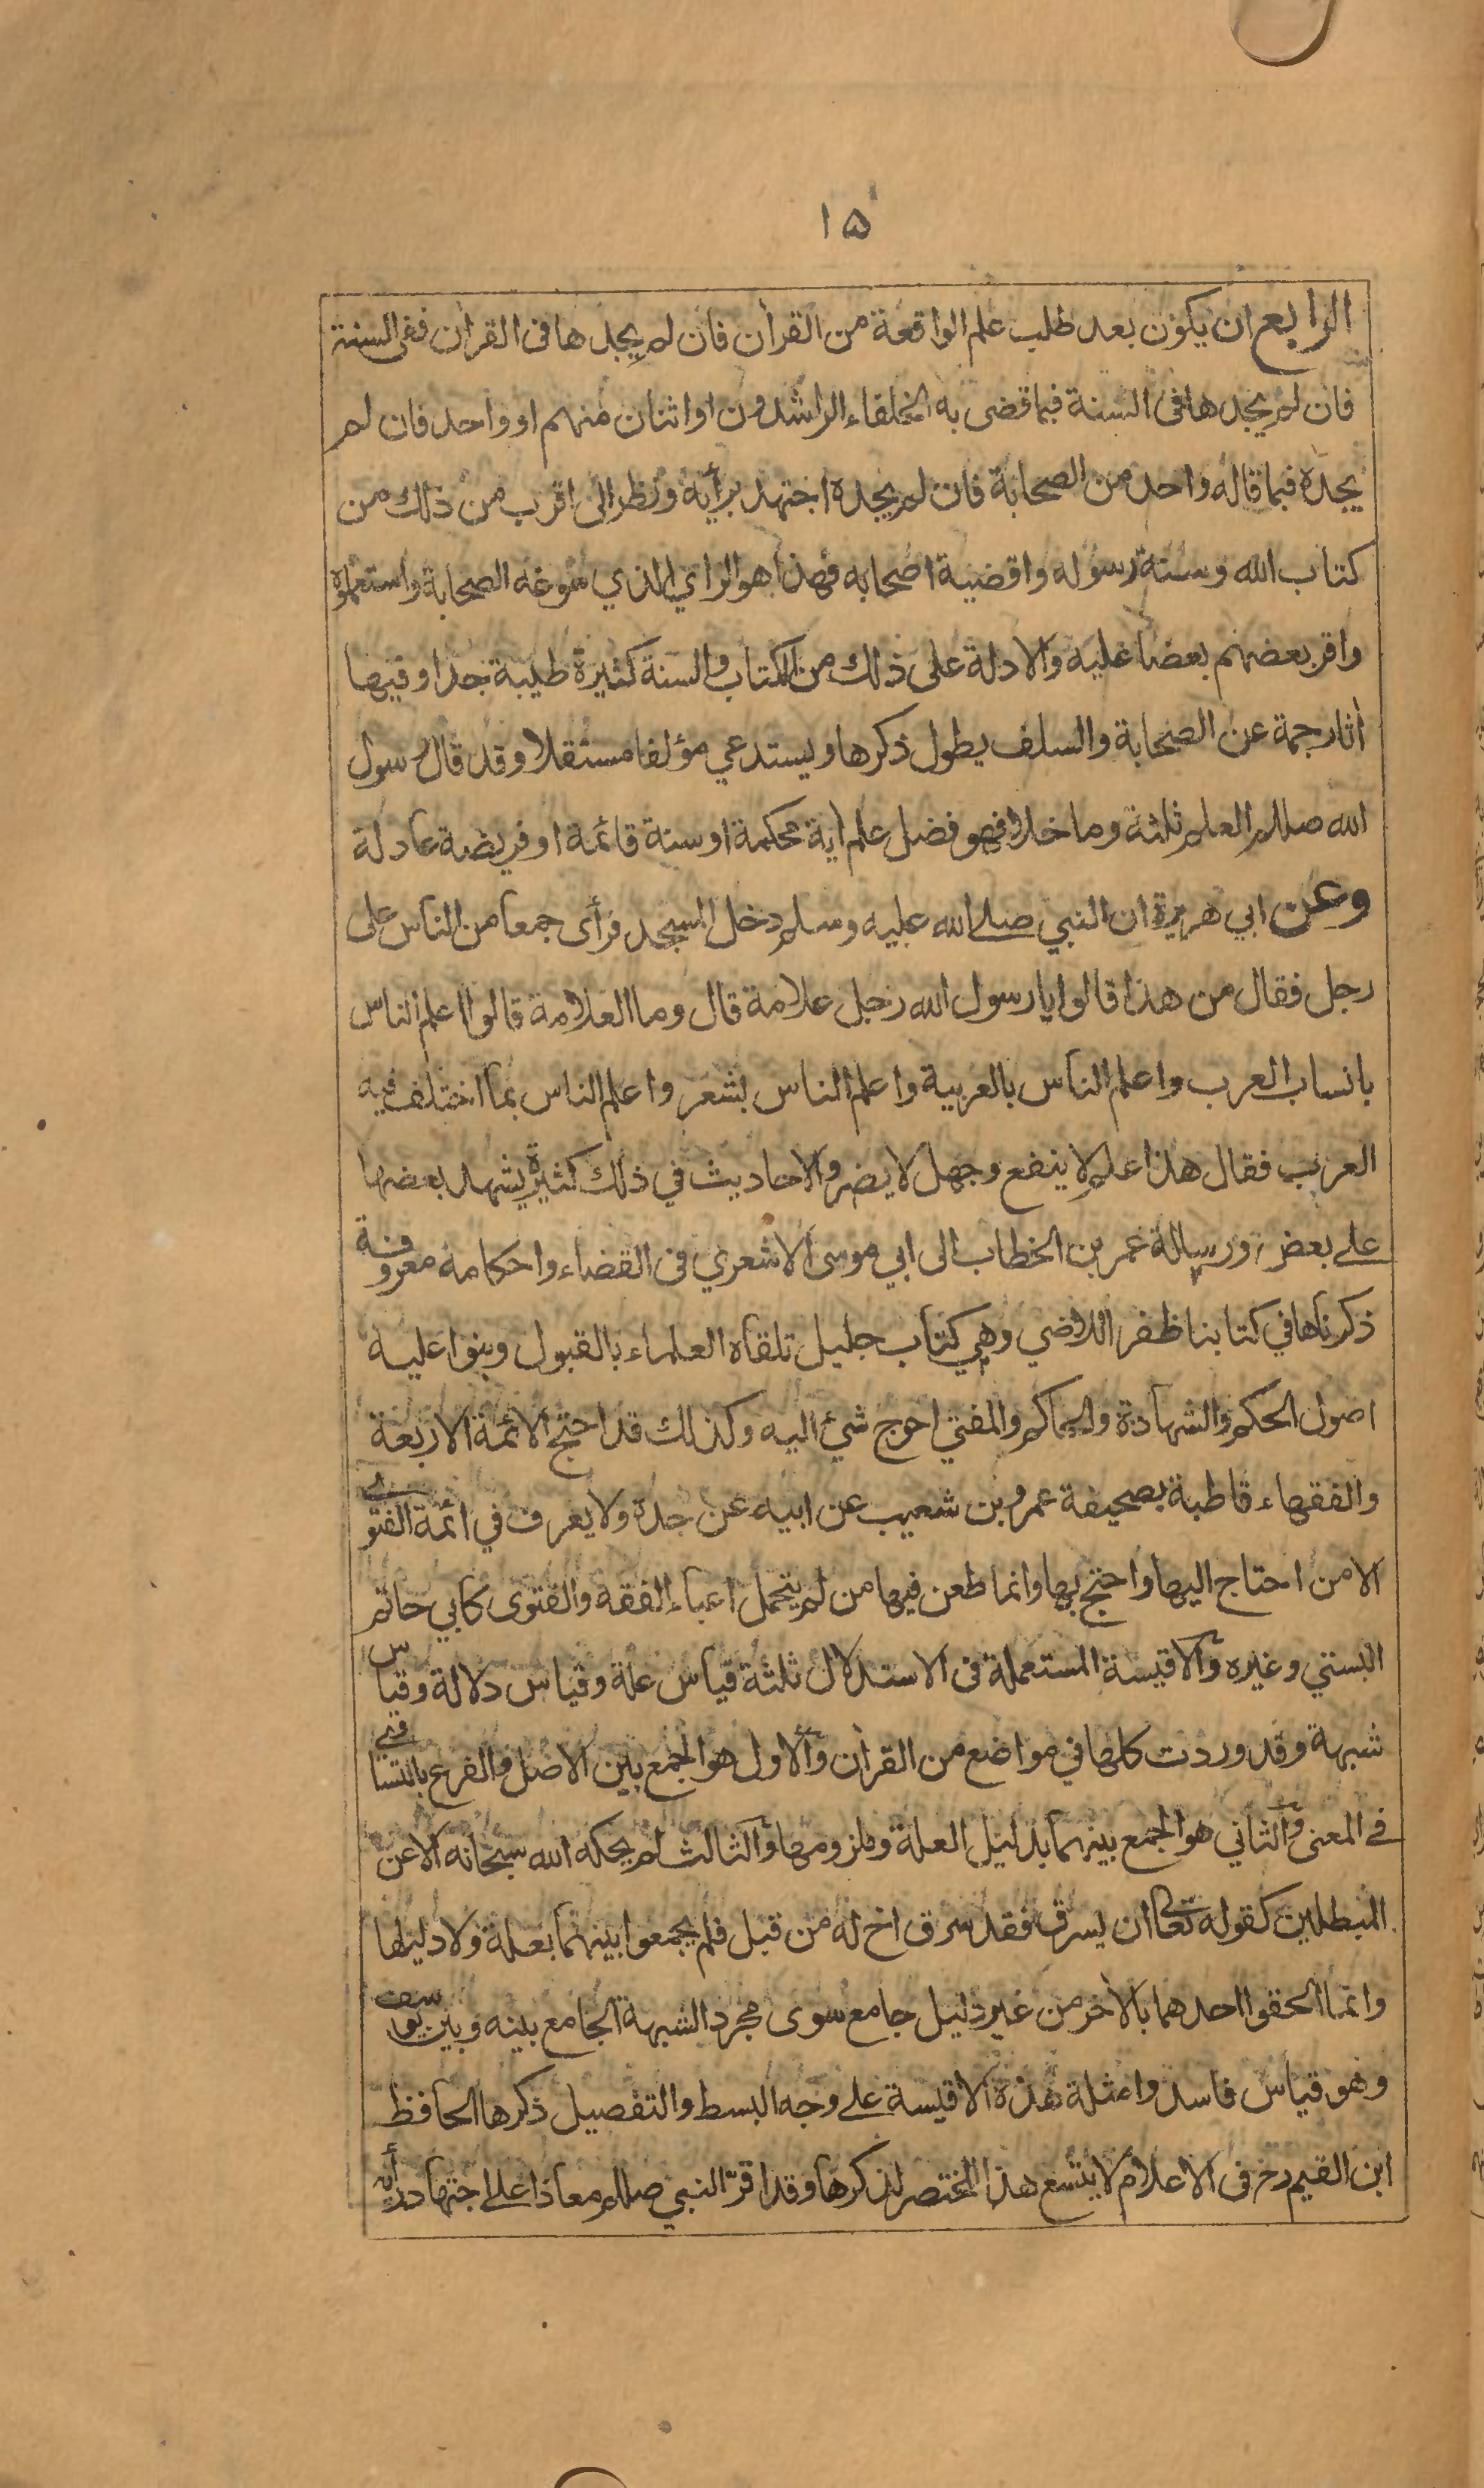 ۱۵
الرابع ان يكون بعد طلب علم الواقعة من القرآن فان لم يجدها فى القرآن ففى السنة
فان لم يجدها فى السنة فبما قضى به الخلفاء الراشدون او اثنان منهم او واحد فان لم
يجده فبما قاله واحد من الصحابة فان لم يجده اجتهد برأيه ونظر الى اقرب من ذلك من
كتاب الله وسنة رسوله واقضية اصحابه فهذا هو الراي الذي سوغه الصحابة واستعملوه
واقر بعضهم بعضا عليه والادلة على ذلك من الكتاب والسنة كثيرة طيبة جدا وفيها
آثار جمة عن الصحابة والسلف يطول ذكرها ويستدعي مؤلفا مستقلا وقد قال رسول
الله صللم العلم ثلثة وما خلا فهو فضل علم آية محكمة او سنة قائمة او فريضة عادلة
وعن ابي هريرة ان النبي صلى الله عليه وسلم دخل المسجد فرأى جمعا من الناس على
رجل فقال من هذا قالوا يا رسول الله رجل علامة قال وما العلامة قالوا اعلم الناس
بانساب العرب واعلم الناس بالعربية واعلم الناس بشعر واعلم الناس بما اختلف فيه
العرب فقال هذا علم لا ينفع وجهل لا يضر والاحاديث في ذلك كثيرة يشهد بعضها
على بعض ورسالة عمر بن الخطاب الى ابي موسى الاشعري فى القضاء واحكامه معروفة
ذكرناها في كتابنا ظفر اللاضي وهي كتاب جليل تلقاه العلماء بالقبول وبنوا عليه
اصول الحكم والشهادة والحاكم والمفتي احوج شئ اليه وكذلك قد احتج الائمة الاربعة
والفقهاء قاطبة بصحيفة عمرو بن شعيب عن ابيه عن جده ولا يعرف في ائمة الفتوى
الا من احتاج اليها واحتج بها وانما طعن فيها من لم يتحمل اعباء الفقه والفتوى كابي حاتم
البستي وغيره والاقيسة المستعملة فى الاستدلال ثلثة قياس علة وقياس دلالة وقياس
شبهة وقد وردت كلها في مواضع من القرآن والاول هو الجمع بين الاصل والفرع بالتساوي
في المعنى والثاني هو الجمع بينهما بدليل العلة وملزومها والثالث لم يحكه الله سبحانه الا عن
المبطلين كقوله تعالى ان يسرق فقد سرق اخ له من قبل فلم يجمعوا بينهما بعلة ولا دليلها
وانما الحقوا احدهما بالآخر من غير دليل جامع سوى مجرد الشبهة الجامع بينه وبين يوسف
وهو قياس فاسد وامثلة هذه الاقيسة على وجه البسط والتفصيل ذكرها الحافظ
ابن القيم رح فى الاعلام لا يتسع هذا المختصر لذكرها وقد اقر النبي صللم معاذا على اجتهاد رأيه